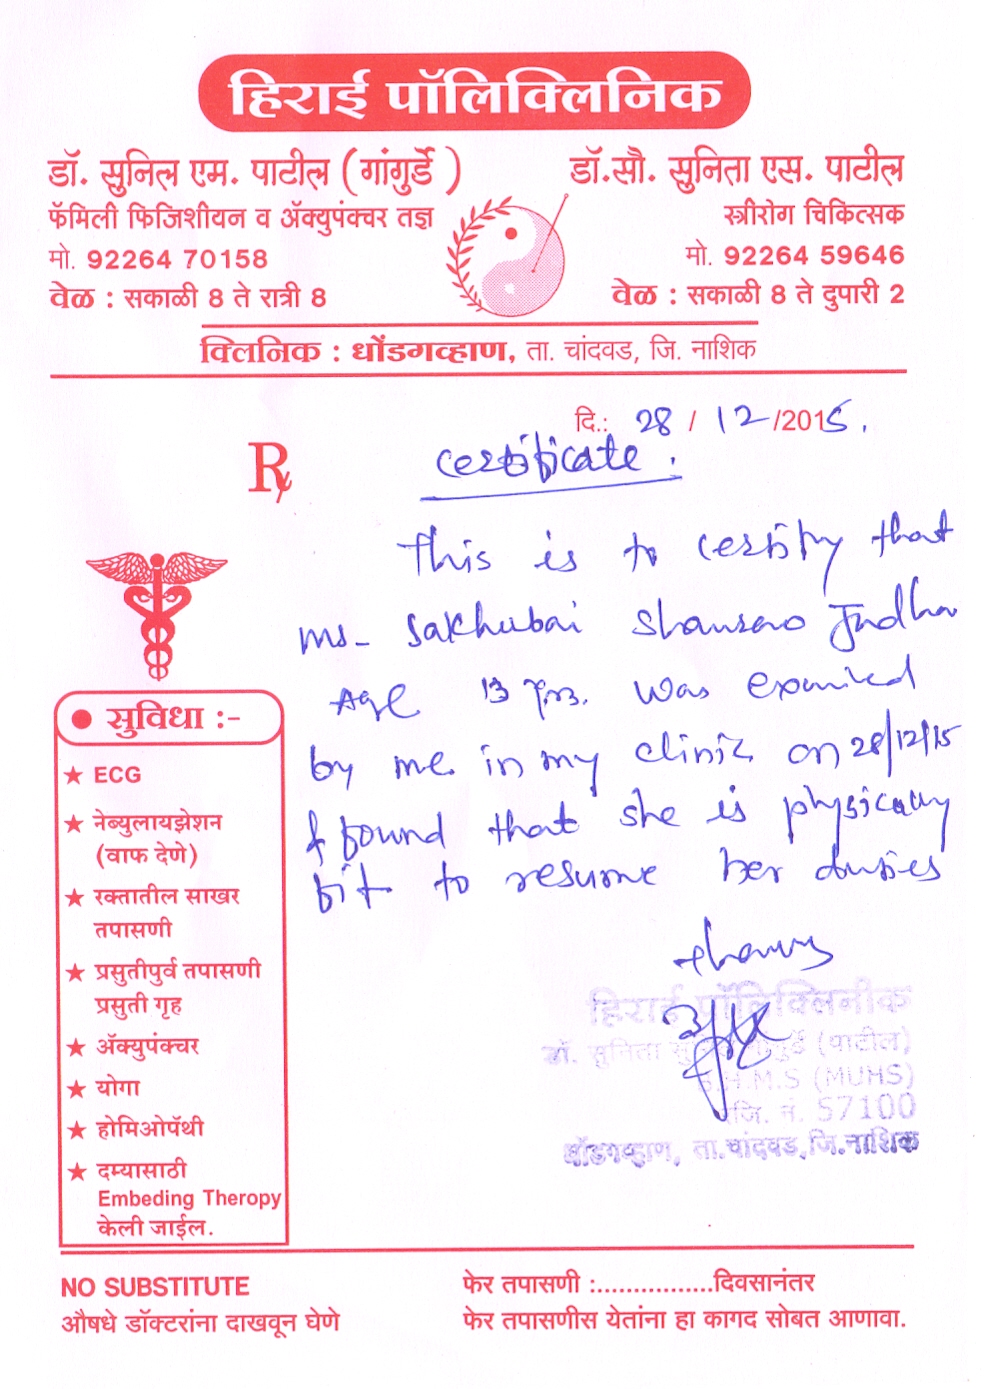 हिराई पॉलिक्लिनिक
डॉ. सुनिल एम. पाटील (गांगुर्डे)
फॅमिली फिजिशीयन व ॲक्युपंक्चर तज्ञ
मो. 92264 70158
वेळ : सकाळी 8 ते रात्री 8
डॉ.सौ. सुनिता एस. पाटील
स्त्रीरोग चिकित्सक
मो. 92264 59646
वेळ : सकाळी 8 ते दुपारी 2
क्लिनिक : धोंडगव्हाण, ता. चांदवड, जि. नाशिक
दि.: 28 / 12 /2015.
Rx
Certificate :
This is to certify that
Ms- Sakhubai
Age 13 yrs. was
by me in my clinic on 28/12/15
& found that she is physically
fit to resume her duties
हिराई पॉलिक्लिनीक
डॉ. सुनिता (पाटील)
B.H.M.S (MUHS)
रजि. नं. 57100
धोंडगव्हाण, ता.चांदवड,जि.नाशिक
सुविधा :-
★ ECG
★ नेब्युलायझेशन
(वाफ देणे)
★ रक्तातील साखर
तपासणी
★ प्रसुतीपुर्व तपासणी
प्रसुती गृह
★ ॲक्युपंक्चर
★ योगा
★ होमिओपॅथी
★ दम्यासाठी
Embeding Theropy
केली जाईल.
NO SUBSTITUTE
औषधे डॉक्टरांना दाखवून घेणे
फेर तपासणी :.................दिवसानंतर
फेर तपासणीस येतांना हा कागद सोबत आणावा.